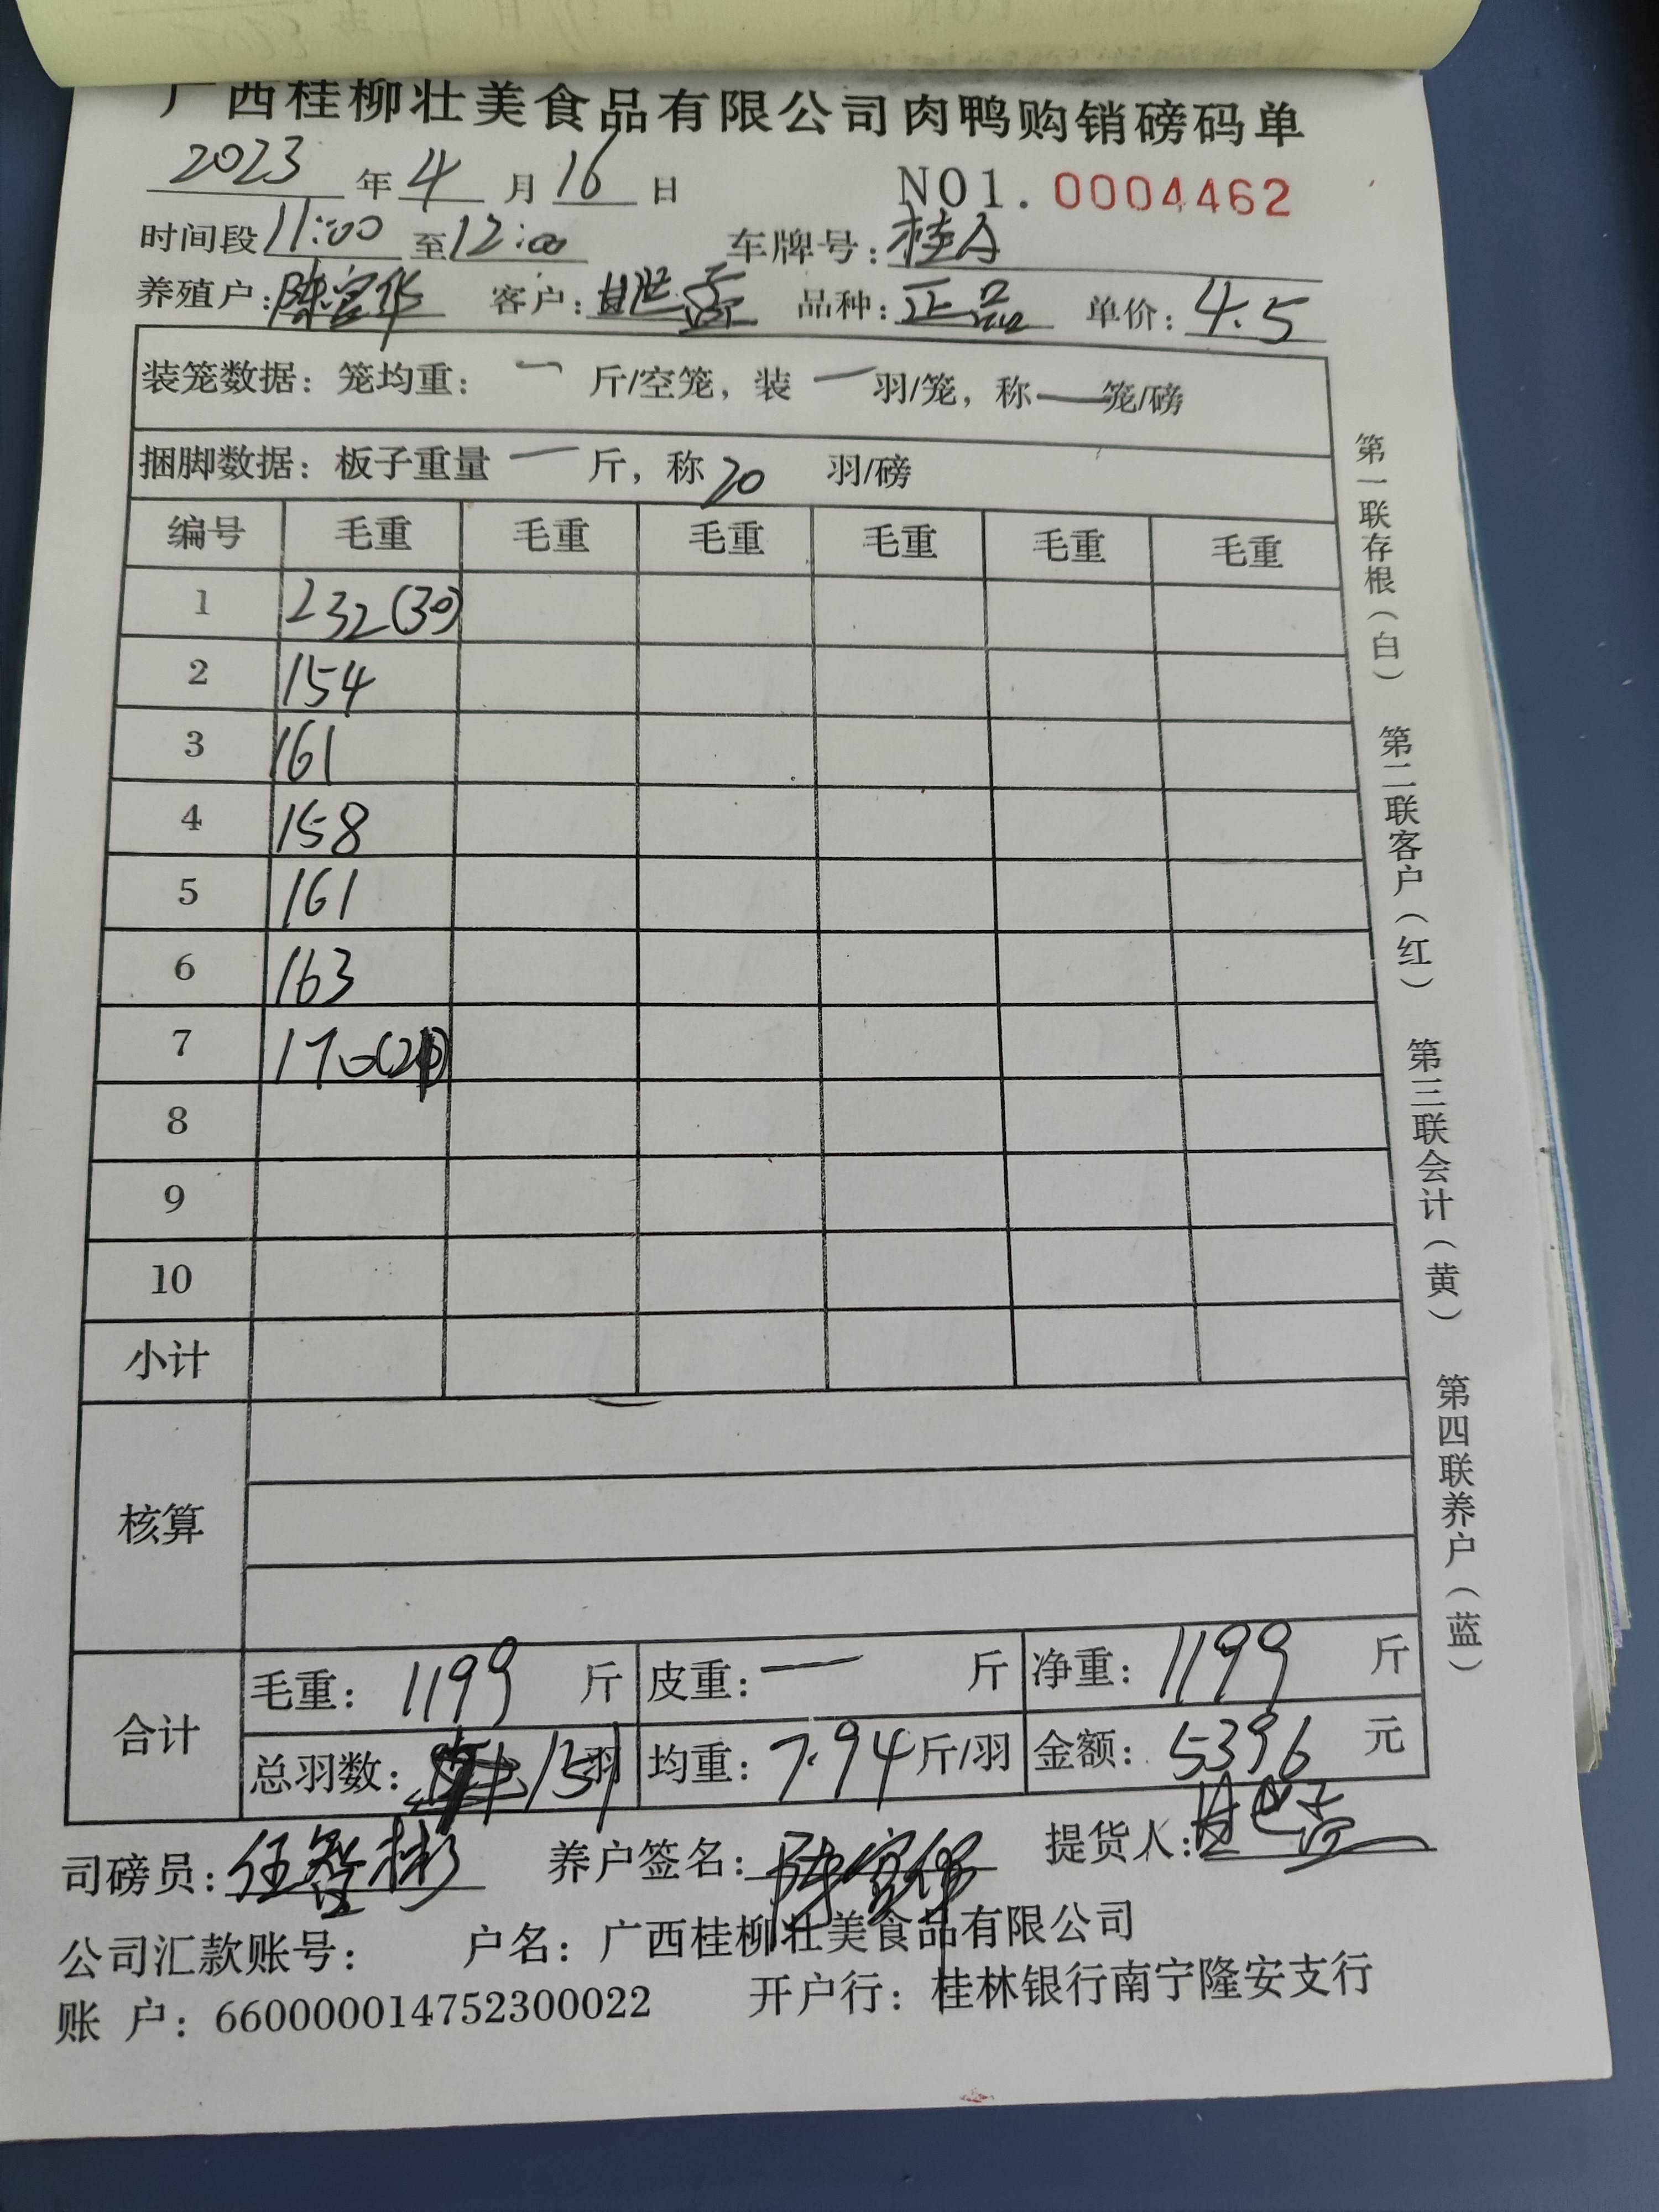 广西桂柳壮美食品有限公司肉鸭购销磅码单
2023年4月16日 NO1.0004462
时间段11:00至12:00 车牌号:桂A
养殖户:陈宝华 客户:甘世孟 品种:正品 单价:4.5
装笼数据:笼均重:一斤/空笼,装一羽/笼,称一笼/磅
捆脚数据:板子重量一斤,称20羽/磅
编号 毛重 毛重 毛重 毛重 毛重 毛重
1 232(30)
2 154
3 161
4 158
5 161
6 163
7 170(21)
8
9
10
小计
核算
合计 毛重:1199斤 皮重:一斤 净重:1199斤
总羽数:151羽 均重:7.94斤/羽 金额:5396元
司磅员:任智彬 养户签名: 提货人:
公司汇款账号: 户名:广西桂柳壮美食品有限公司
账 户:660000014752300022 开户行:桂林银行南宁隆安支行
第一联存根(白) 第二联客户(红) 第三联会计(黄) 第四联养户(蓝)